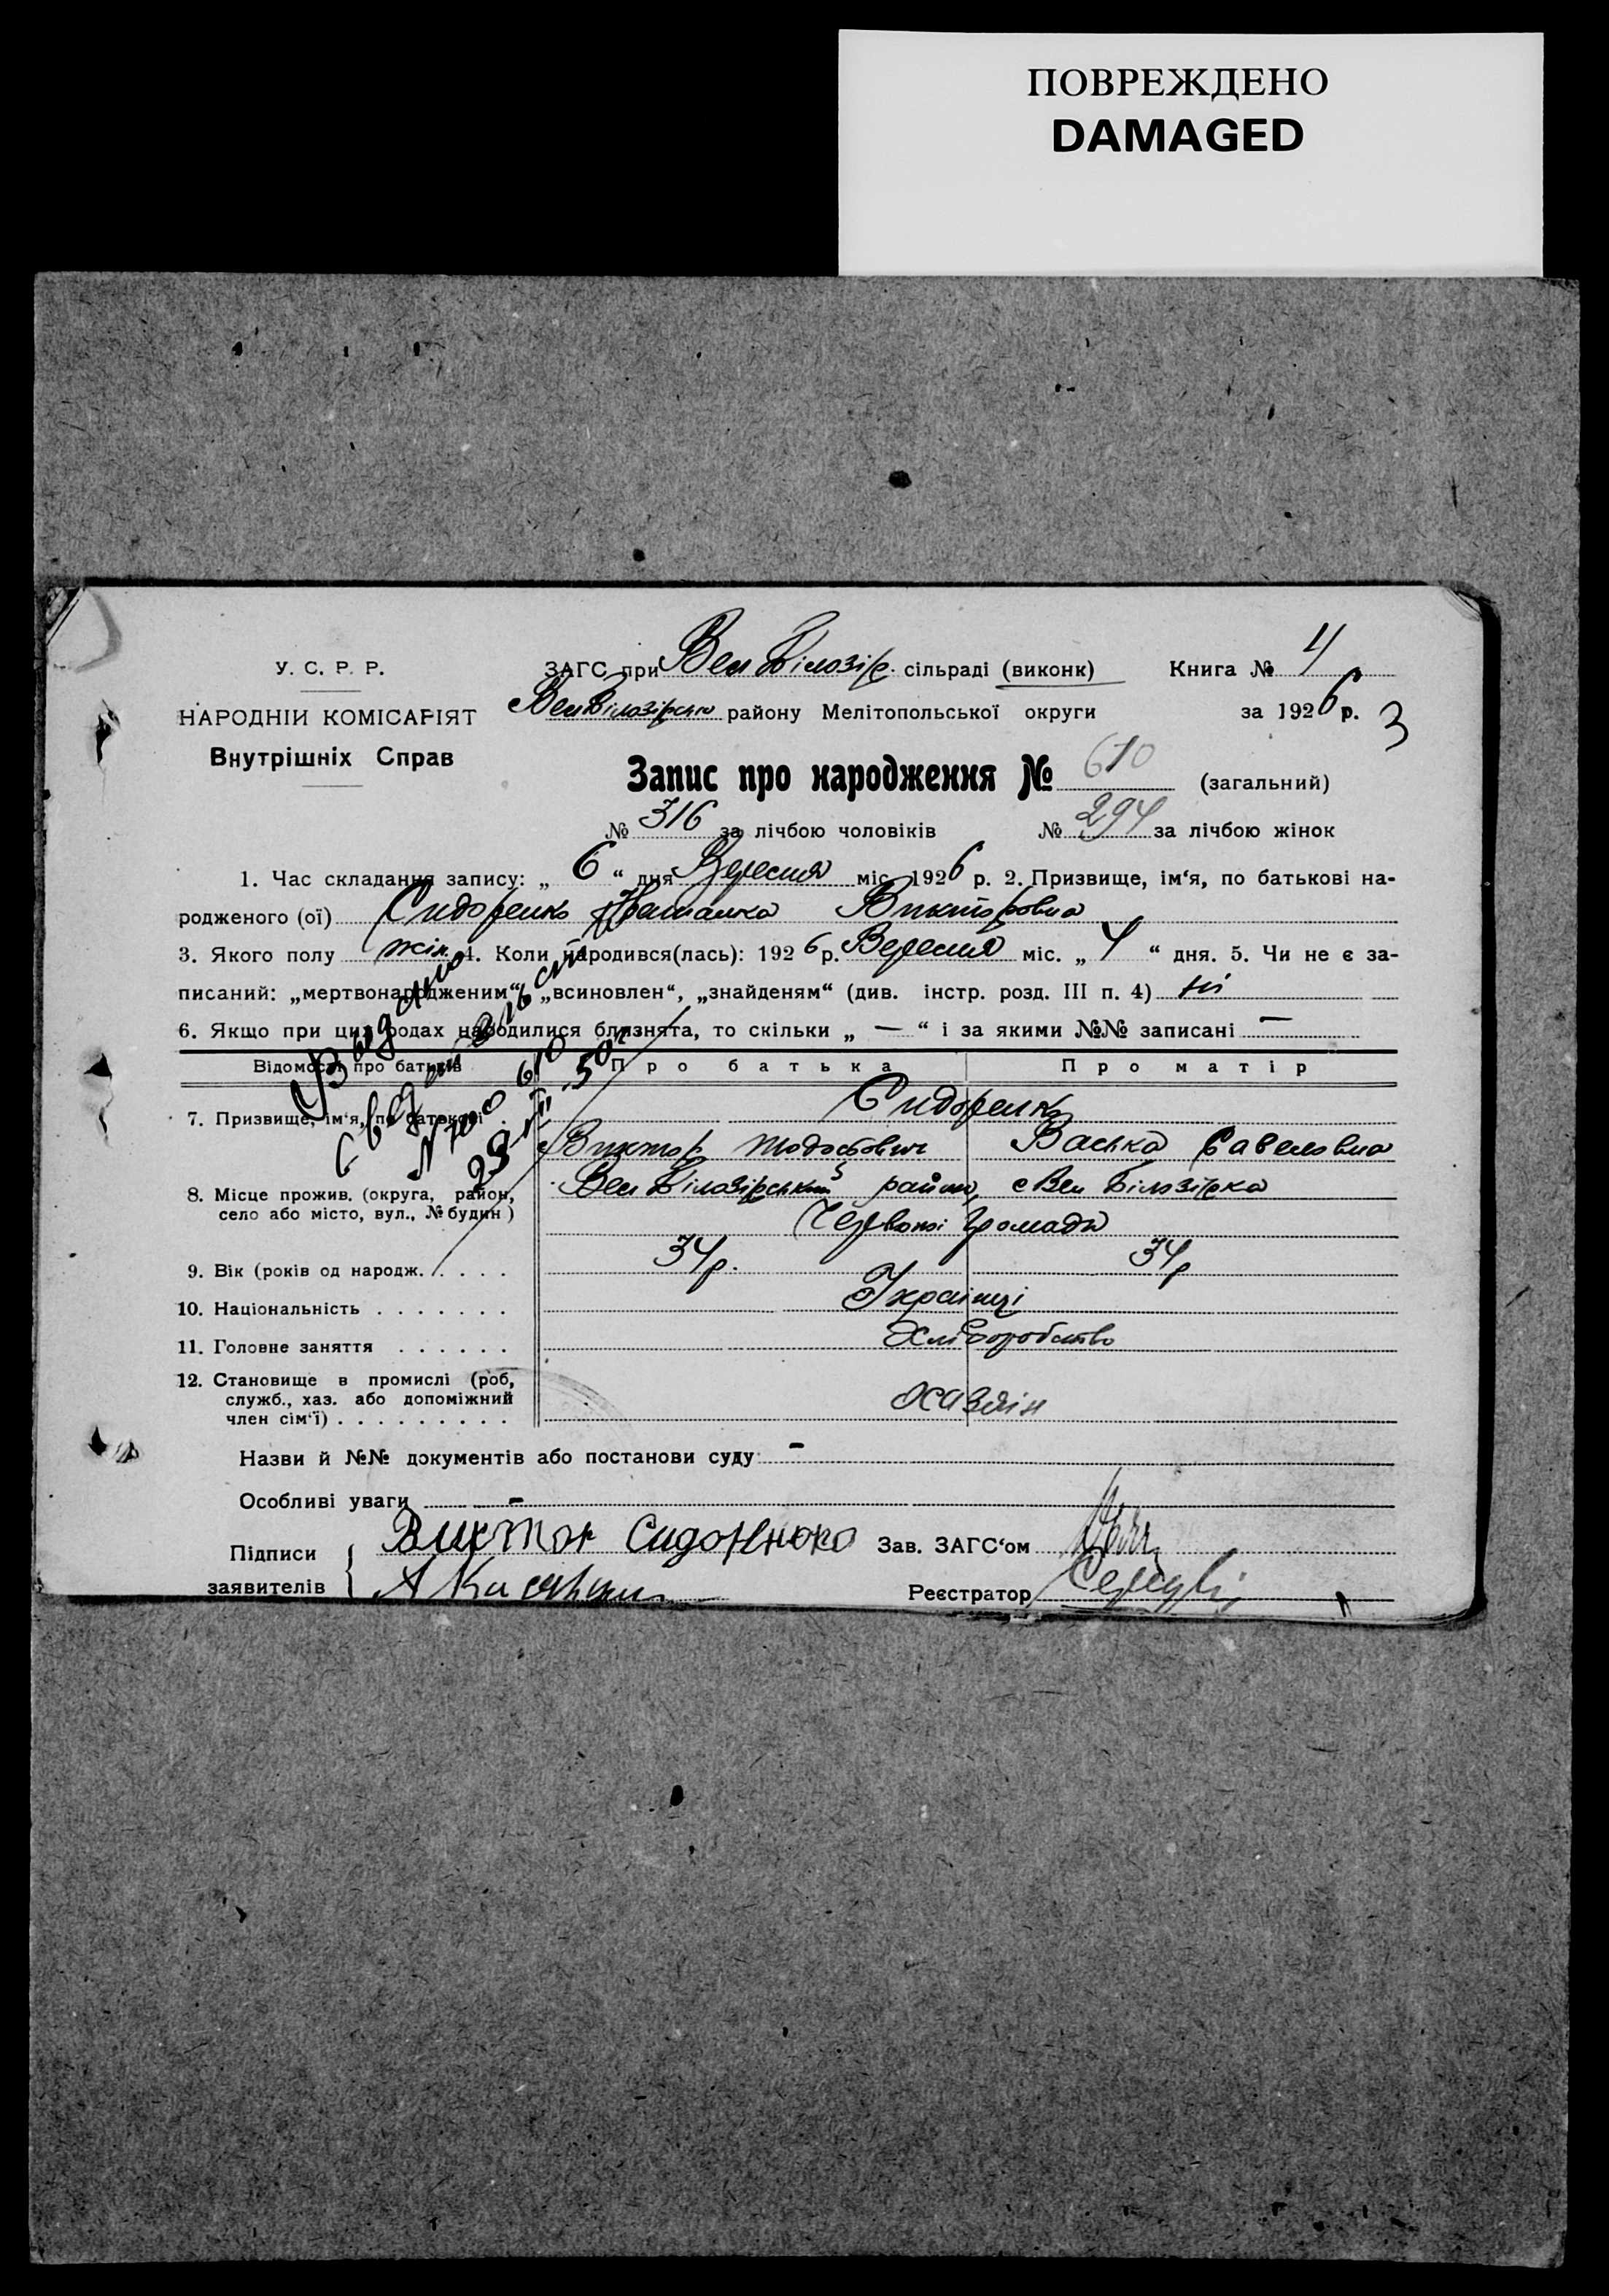 ПОВРЕЖДЕНО
DAMAGED
У. С. Р. Р.
НАРОДНІЙ КОМІСАРІЯТ
Внутрішніх Справ
ЗАГС при Вел Білозір. сільраді (виконк) Книга № 4
ВелБілозірськ району Мелітопольської округи за 1926 р. 3
Запис про народження № 610 (загальний)
№ 316 за лічбою чоловіків № 294 за лічбою жінок
1. Час складання запису: „ 6 “ дня Вересня міс. 1926 р. 2. Призвище, ім‘я, по батькові на-
родженого (ої) Сидоренко Наталка Викторовна
3. Якого полу жін. 4. Коли народився(лась): 1926 р. Вересня міс. „ 4 “ дня. 5. Чи не є за-
писаний: „мертвонародженим“, „всиновлен“, „знайденям“ (див. інстр. розд. III п. 4) ні
6. Якщо при цих родах народилися близнята, то скільки „ — “ і за якими №№ записані —
Выдано
свидетельство
610
23-III-50г
Відомости про батьків Про батька Про матір
7. Призвище, ім‘я, по батькові Сидоренко
Виктор Тодосович Васька Савеловна
8. Місце прожив. (округа, район, село або місто, вул., № будин) Вел Білозірський район, с Вел Білозірка
Червоної Громади
9. Вік (років од народж. 34 р. 34 р
10. Національність Українці
11. Головне заняття Хліборобство
12. Становище в промислі (роб, служб., хаз. або допоміжний член сім‘ї) Хазяїн
Назви й №№ документів або постанови суду: –
Особливі уваги –
Підписи заявителів Виктор Сидоренко Зав. ЗАГС‘ом
Реєстратор